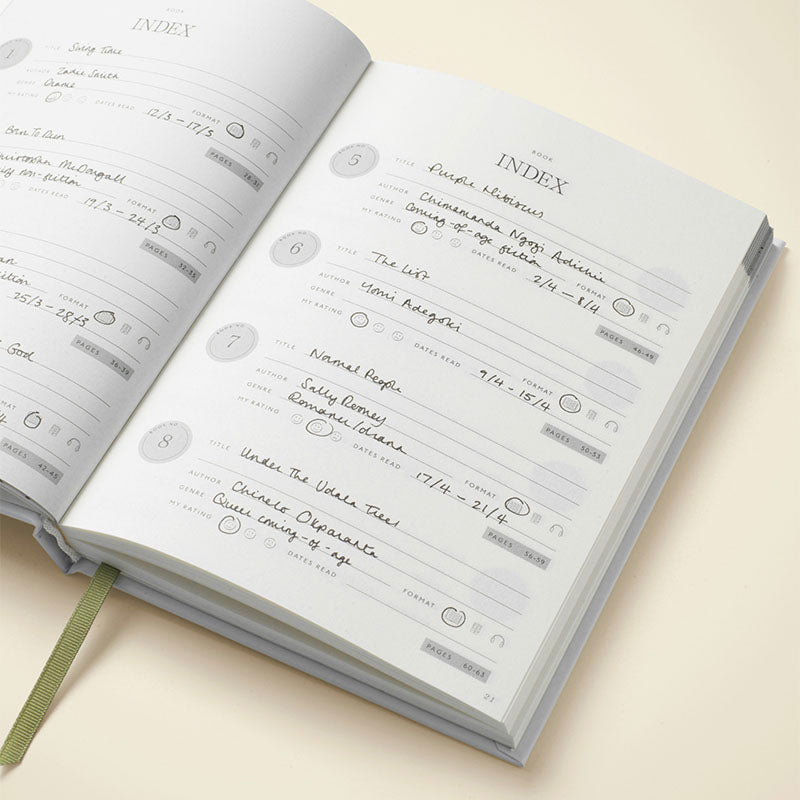 BOOK
INDEX
1
TITLE Swing Time
AUTHOR Zadie Smith
GENRE Drama
MY RATING
DATES READ 12/3 – 17/3
FORMAT
PAGES 28-31
Born To Run
Christopher McDougall
non-fiction
DATES READ 19/3 – 24/3
FORMAT
PAGES 32-35
25/3 – 28/3
FORMAT
PAGES 36-39
God
FORMAT
PAGES 42-45
BOOK
INDEX
BOOK NO.
5
TITLE Purple Hibiscus
AUTHOR Chimamanda Ngozi Adichie
GENRE Coming-of-age fiction
MY RATING
DATES READ 2/4 – 8/4
FORMAT
PAGES 46-49
BOOK NO.
6
TITLE The List
AUTHOR Yomi Adegoki
GENRE
MY RATING
DATES READ 9/4 – 15/4
FORMAT
PAGES 50-53
BOOK NO.
7
TITLE Normal People
AUTHOR Sally Rooney
GENRE Romance/drama
MY RATING
DATES READ 17/4 – 21/4
FORMAT
PAGES 56-59
BOOK NO.
8
TITLE Under The Udala Trees
AUTHOR Chinelo Okparanta
GENRE Queer coming-of-age
MY RATING
DATES READ
FORMAT
PAGES 60-63
21